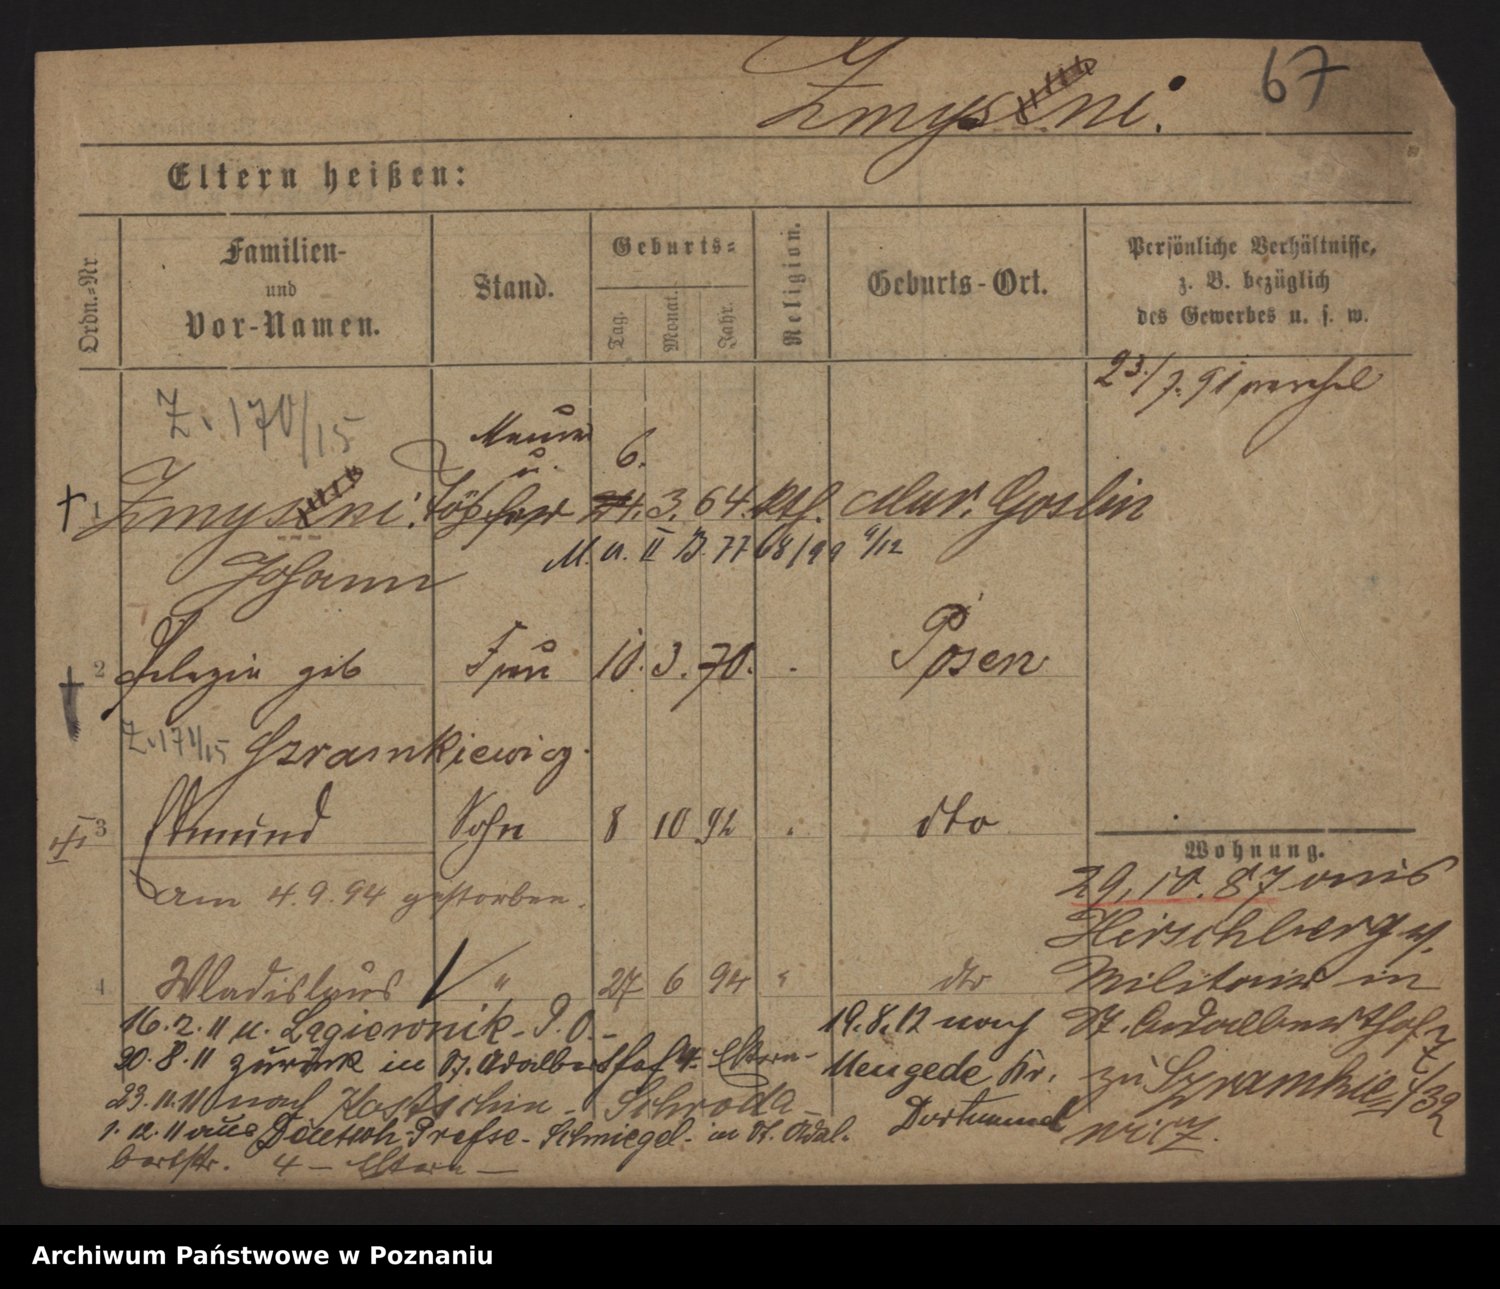 67
Zmysni.
Eltern heißen:
Ordn.=Nr
Familien-
und
Vor-Namen.
Stand.
Geburts=
Tag.
Monat.
Jahr.
Religion.
Geburts-Ort.
Persönliche Verhältnisse,
z. B. bezüglich
des Gewerbes u. s. w.
23./7. 91
Z. 170/15
Maurer
u. 6.
† 1 Zmysni. Töpfer 3. 64. kth. Mur. Goslin
Johann
M. a. II B. 77 68/99 9/12
† 2 Pelagia geb Frau 10. 3. 70. Posen
Z. 171/15 Szramkiewicz.
3 Edmund Sohn 8 10 92 dto
am 4. 9. 94 gestorben.
4 Wladislaus " 27 6 94 " dto
16. 2. 11 n. Lagiewnik - P. O. -
20. 8. 11 zurück in St. Adalberthof 4 Eltern -
23. 11. 11 nach Kostschin - Schroda -
1. 12. 11 aus Deutsch Presse - Schmiegel - in St. Adal-
bertstr. 4 - Eltern -
19. 8. 12 nach
Mengede Kr.
Dortmund
Wohnung.
29. 10. 87 aus
Hirschberg v.
Militair in
St. Adalberthof
zu Szramkie-
wicz.